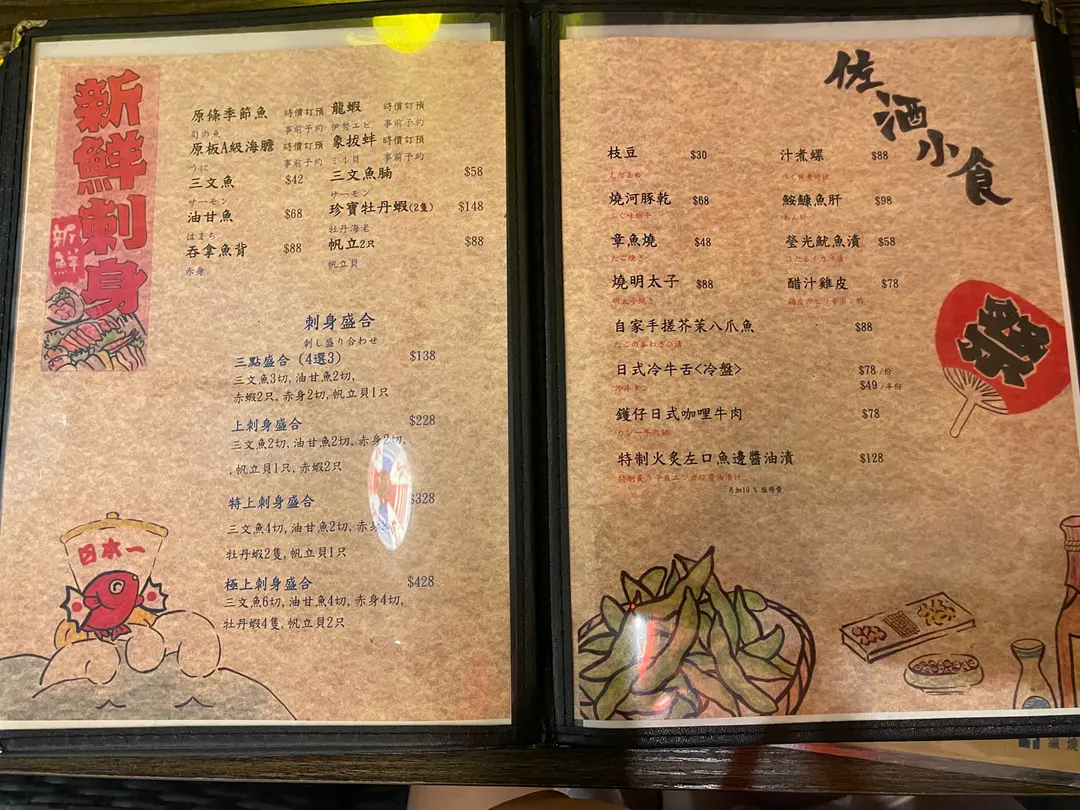 新鮮刺身
新鮮
原條季節魚 時價訂預
旬の魚 事前予約
龍蝦 時價訂預
伊勢エビ 事前予約
原板A級海膽 時價訂預
うに 事前予約
象拔蚌 時價訂預
ミル貝 事前予約
三文魚 $42
サーモン
三文魚腩 $58
サーモン
油甘魚 $68
はまち
珍寶牡丹蝦(2隻) $148
牡丹海老
吞拿魚背 $88
赤身
帆立2只 $88
帆立貝
刺身盛合
刺し盛り合わせ
三點盛合 (4選3) $138
三文魚3切, 油甘魚2切,
赤蝦2只, 赤身2切, 帆立貝1只
上刺身盛合 $228
三文魚2切, 油甘魚2切, 赤身2切,
,帆立貝1只, 赤蝦2只
特上刺身盛合 $328
三文魚4切, 油甘魚2切, 赤
牡丹蝦2隻, 帆立貝1只
極上刺身盛合 $428
三文魚6切, 油甘魚4切, 赤身4切,
牡丹蝦4隻, 帆立貝2只
日本一
佐酒小食
枝豆 $30
えだまめ
汁煮螺 $88
燒河豚乾 $68
ふぐ味醂干
鮟鱇魚肝 $98
あん肝
章魚燒 $48
たこ焼き
瑩光魷魚漬 $58
ほたるイカ沖漬
燒明太子 $88
明太子焼き
醋汁雞皮 $78
鶏皮のピリ辛ポン酢
自家手搓芥茉八爪魚 $88
たこのあわさび漬
日式冷牛舌<冷盤> $78 /份
冷牛タン $49 /半份
鑊仔日式咖哩牛肉 $78
カレー牛肉鍋
特制火炙左口魚邊醬油漬 $128
特制炙り子持エンガワ醤油漬け
另加10 % 服務費